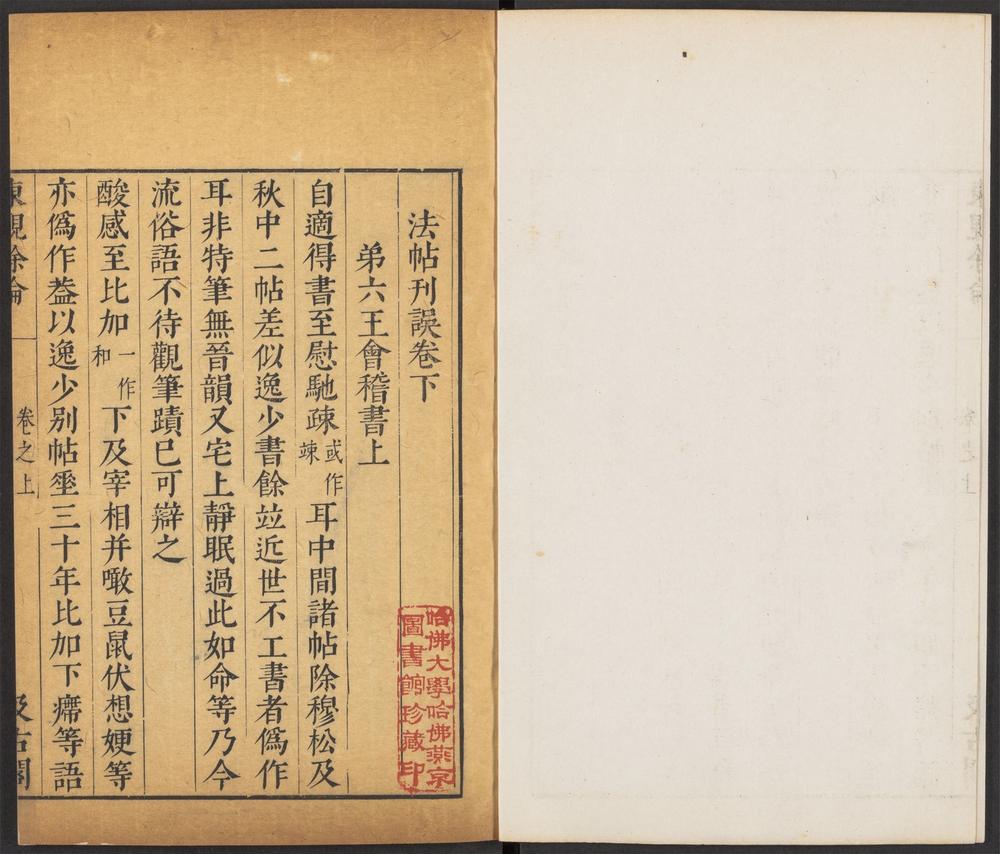 法帖刊誤卷下
弟六王會稽書上
自適得書至慰馳疎或作竦耳中間諸帖除穆松及
秋中二帖差似逸少書餘竝近世不工書者僞作
耳非特筆無晉韻又宅上靜眠過此如命等乃今
流俗語不待觀筆蹟巳可辯之
酸感至比加一作和下及宰相并噉豆鼠伏想㛐等
亦僞作葢以逸少别帖埊三十年比加下㿃等語
東觀餘論 卷之上 汲古閣
哈佛大學哈佛燕京
圖書館珍藏印